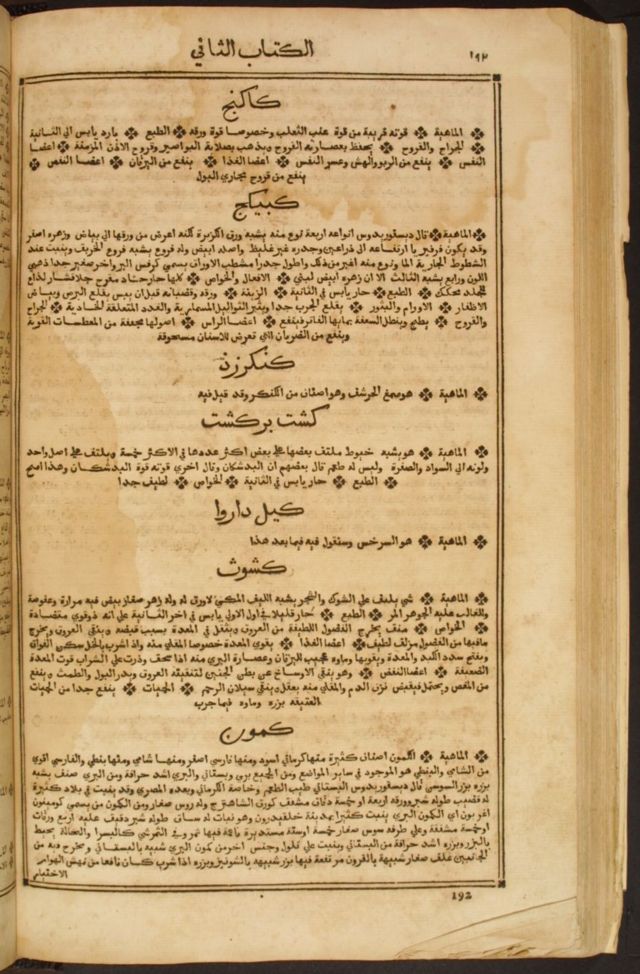 الكتاب الثاني ١٩٢
كاكنج
الماهية قوته قريبة من قوة عنب الثعلب وخصوصا قوة ورقه الطبع بارد يابس الى الثانية
الجراح والقروح يحفظ بعصارته القروح ويذهب بصلابة البواسير وقروح الاذن المزمنة اعضا
النفس ينفع من الربو والهش وعسر النفس اعضا الغذا ينفع من اليرقان اعضا النفض
ينفع من قروح مجاري البول
كبيكج
الماهية قال ديسقوريدوس انواعه اربعة نوع منه يشبه ورق الكزبرة لكنه اعرض من ورقها الى بياض وزهره اصفر
وقد يكون فرفيريا ارتفاعه الى ذراعين وجذره غير غليظ واصله ابيض وله فروع يشبه فروع الخريف وينبت عند
الشطوط الجارية الما ونوع منه اغبر من ذلك واطول جدرا مشطب الاوراق يسمى كرفس البر واخر صغير جدا ذهبي
اللون ورابع يشبه الثالث الا ان زهره ابيض لبني الافعال والخواص لانها حار حاد مقرح جلا قشار لذاع
للجلد محكك الطبع حار يابس في الثانية الزينة ورقه وقضبانه قبل ان ييبس يقلع البرص وبياض
الاظفار الاورام والبثور يقلع الجرب جدا وينثر الثواليل المسمارية والغدد المتعلقة الجراح
والقروح يطبخ وينطل السعفة بمايها الفاتر فينفع اعضا الراس اصولها مجففة من المعطسات القوية
وينفع من الضربان التي تعرض للاسنان مسحوقة
كنكرزد
الماهية هو صمغ الحرشف وهو اصناف من الكنكر وقد قيل فيه
كشت بركشت
الماهية هو يشبه خيوط ملتف بعضها على بعض اكثر عددها في الاكثر خمسة ويلتف على اصل واحد
ولونه الى السواد والصفرة وليس له طعم قال بعضهم ان البدشكان وقال اخرى قوته قوة البدشكان وهذا اصح
الطبع حار يابس في الثانية الخواص لطيف جدا
كيل داروا
الماهية هو السرخس وسنقول فيه فيما بعد هذا
كشوث
الماهية شي يلتف على الشوك والشجر يشبه الليف المكي لا ورق له وله زهر صغار بيض فيه مرارة وعفوصة
والغالب عليه الجوهر المر الطبع حار قليلا في اول الاولى يابس في اخر الثانية على انه ذو قوى متضادة
الخواص منقى يخرج الفضول اللطيفة من العروق ويثقل في المعدة بسبب قبضه وينقى العروق ويخرج
ما فيها من الفضول مزلف لطيف اعضا الغذا يقوي المعدة خصوصا المقلي منه واذا شرب بالخل سكن الفواق
ويفتح سدد الكبد والمعدة ويقويها وماوه عجيب لليرقان وعصارة البري منه اذا سحق وذرت على الشراب قوت المعدة
الضعيفة اعضا النفض وهو ينقي الاوساخ عن بطن الجنين لتنقيته العروق ويدر البول والطمث وينفع
من المغص ويحتمل فيقبض نزف الدم والمقلي منه يعقل وينقي سيلان الرحم الحميات ينفع جدا من الحميات
العتيقة بزره وماوه فيما جرب
كمون
الماهية الكمون اصناف كثيرة منها كرماني اسود ومنها فارسي اصفر ومنها شامي ومنها نبطي والفارسي اقوى
من الشامي والنبطي هو الموجود في ساير المواضع ومن الجميع بري وبستاني والبري اشد حرافة ومن البري صنف يشبه
بزره بزر السوسن قال ديسقوريدوس البستاني طيب الطعم وخاصة الكرماني وبعده المصري وقد ينبت في بلاد كثيرة
له قضيب طوله شبر وورقه اربعة او خمسة دقاق مشقف كورق الشاهترج وله روس صغار ومن الكمون من يسمى كومينون
اغريون اي الكمون البري ينبت كثيرا بمدينة خلقيدرون وهو نبات له ساق طوله شبر دقيق عليه اربع ورقات
او خمسة مشققة وعلى طرفه سوس صغار خمسة او ستة مستديرة ناعمة فيها ثمر وفي الثمر شي كالسرا والنخالة يحيط
بالبزر وبزره اشد حرافة من البستاني وينبت على تلول وجنس اخر من كمون البري شبيه بالبستاني ويخرج فيه من
الجانبين غلف صغار شبيهة بالقرون مرتفعة فيها بزر شبيهة بالشونيز وبزره اذا شرب كان نافعا من نهش الهوام
الاختيار
192